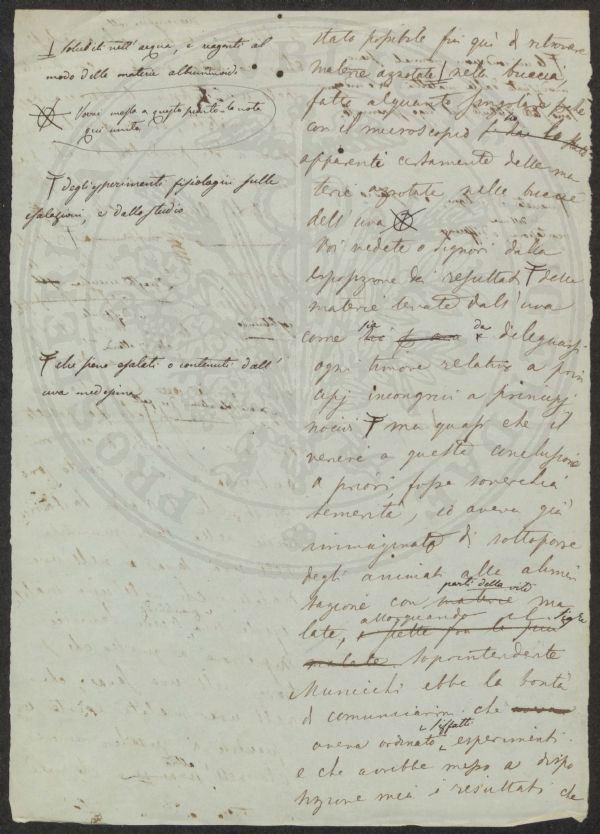 I solubili nell'acqua, e reagenti al
modo delle materie albuminoidi
Vorrei messa a questo punto la nota
qui unita
T degli esperimenti fisiologici sulle
esalazioni, e dallo studio
T che sieno esalati o contenuti dall'
uva medesima
stato possibile fin quì di ritrovare
materie azotate I nelle buccia,
fatte alquanto
con il microscopio
apparenti certamente delle ma
terie azotate nelle buccie
dell'uva
Voi vedete o signori dalla
esposizione dei resultati T delle
materie levate dall'uva
come sia da dileguarsi
ogni timore relativo a prin
cipj incogniti a principj
nocivi T ma quasi che il
venire a queste conclusioni
a priori, fosse soverchia
temerità, io aveva già
immaginato di sottoporre
degli animali alle alimen
tazione con materie parti della vite ma
late, allorquando il Sigre
malate Soprintendente
Municchi ebbe la bontà
di comunicarmi che
aveva ordinato siffatti esperimenti
e che avrebbe messo a dispo
sizione mia i resultati che